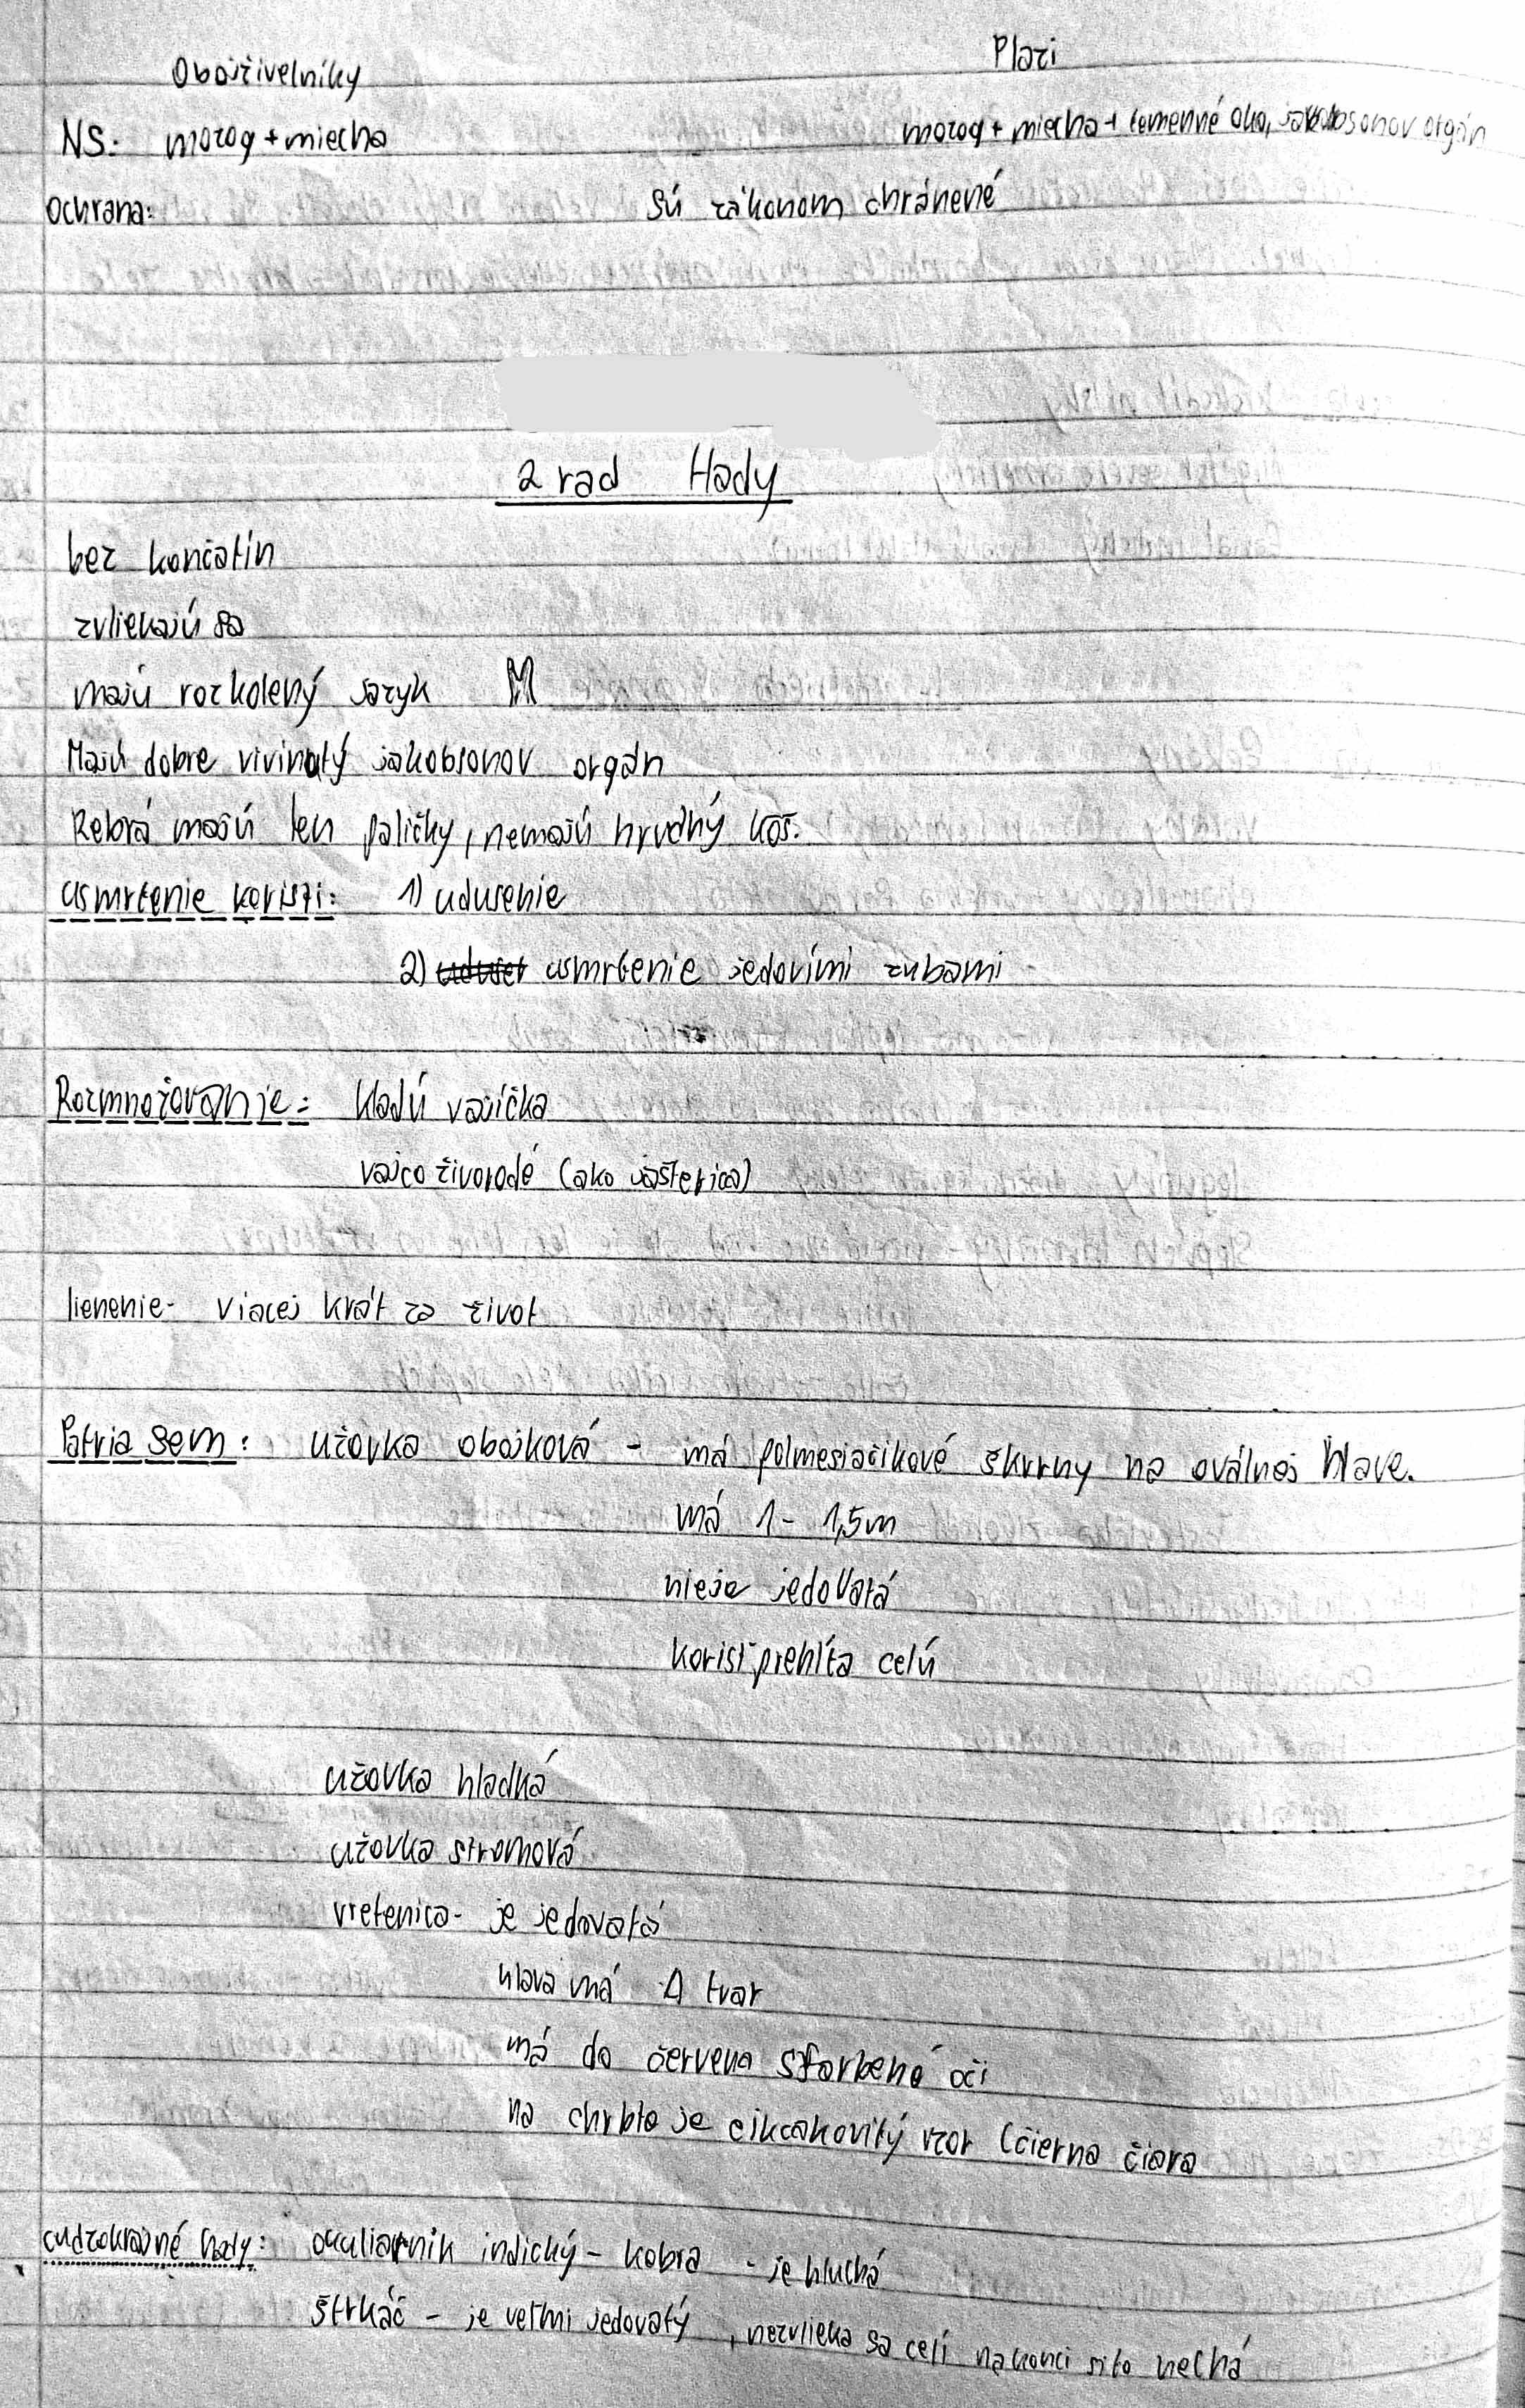 Obojživelníky Plazi
NS: mozog + miecha mozog + miecha + temenné oko, jakobsonov orgán
Ochrana: sú zákonom chránené
2 rad Hady
bez končatín
zvliekajú sa
majú rozkolený jazyk
Majú dobre vivinutý jakobsonov orgán
Rebrá majú len paličky, nemajú hrudný kôš.
usmrtenie koristi: 1) udusenie
2) usmrtenie jedovími zubami
Rozmnožovanie: kladú vajíčka
vajcoživorodé (ako jašterica)
lienenie - viacej krát za život
Patria sem: užovka obojková - má polmesiačikové škvrny na oválnej hlave.
má 1 - 1,5m
nieje jedovatá
korisť prehĺta celú
užovka hladká
užovka stromová
vretenica - je jedovatá
hlava má Δ tvar
má do červena sfarbené oči
na chrbte je cikcakovitý vzor (čierna čiara
cudzokrajné hady: okuliarnik indický - kobra - je hluchá
štrkáč - je veľmi jedovatý, nezvlieka sa celí na konci si to nechá